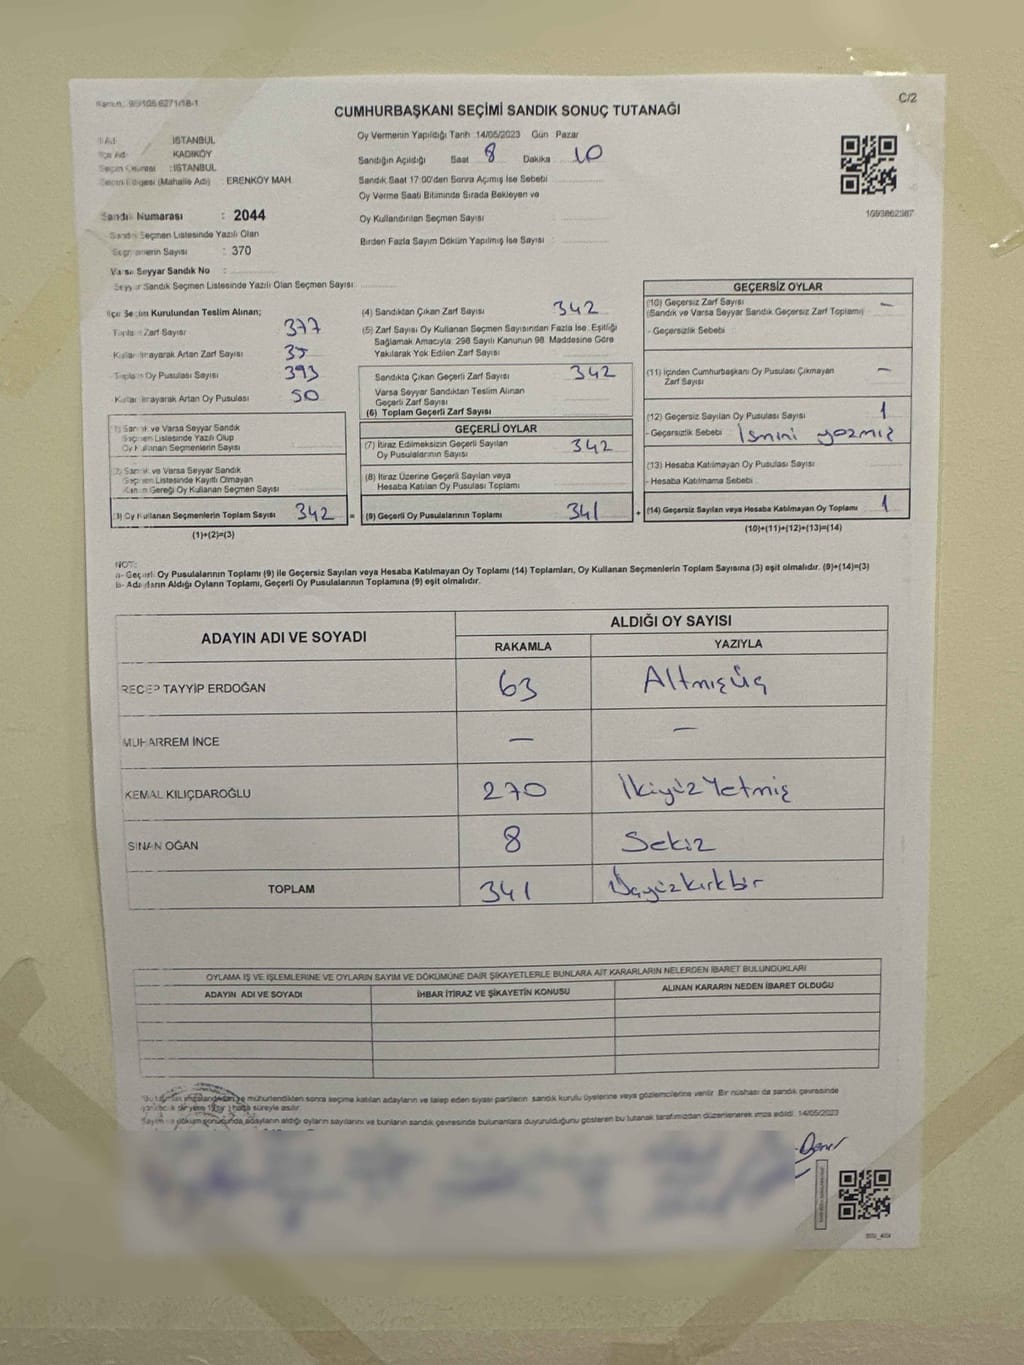 C/2
CUMHURBAŞKANI SEÇİMİ SANDIK SONUÇ TUTANAĞI
İSTANBUL
KADIKÖY
: İSTANBUL
Seçim Bölgesi (Mahalle Adı) : ERENKÖY MAH.
Sandık Numarası : 2044
Sandık Seçmen Listesinde Yazılı Olan
Seçmenlerin Sayısı : 370
Varsa Seyyar Sandık No :
Seyyar Sandık Seçmen Listesinde Yazılı Olan Seçmen Sayısı
Oy Vermenin Yapıldığı Tarih 14/05/2023 Gün Pazar
Sandığın Açıldığı Saat 8 Dakika 10
Sandık Saat 17:00'den Sonra Açımış İse Sebebi
Oy Verme Saati Bitiminde Sırada Bekleyen ve
Oy Kullandırılan Seçmen Sayısı
Birden Fazla Sayım Döküm Yapılmış İse Sayısı
1093862987
İlçe Seçim Kurulundan Teslim Alınan;
Toplam Zarf Sayısı 377
Kullanılmayarak Artan Zarf Sayısı 35
Toplam Oy Pusulası Sayısı 393
Kullanılmayarak Artan Oy Pusulası 50
(1) Sandık ve Varsa Seyyar Sandık
Seçmen Listesinde Yazılı Olup
Oy Kullanan Seçmenlerin Sayısı
(2) Sandık ve Varsa Seyyar Sandık
Seçmen Listesinde Kayıtlı Olmayan
Kanun Gereği Oy Kullanan Seçmen Sayısı
(3) Oy Kullanan Seçmenlerin Toplam Sayısı 342 =
(1)+(2)=(3)
(4) Sandıktan Çıkan Zarf Sayısı 342
(5) Zarf Sayısı Oy Kullanan Seçmen Sayısından Fazla İse, Eşitliği
Sağlamak Amacıyla; 298 Sayılı Kanunun 98. Maddesine Göre
Yakılarak Yok Edilen Zarf Sayısı
Sandıkta Çıkan Geçerli Zarf Sayısı 342
Varsa Seyyar Sandıktan Teslim Alınan
Geçerli Zarf Sayısı
(6) Toplam Geçerli Zarf Sayısı
GEÇERLİ OYLAR
(7) İtiraz Edilmeksizin Geçerli Sayılan
Oy Pusulalarının Sayısı 342
(8) İtiraz Üzerine Geçerli Sayılan veya
Hesaba Katılan Oy Pusulası Toplamı
(9) Geçerli Oy Pusulalarının Toplamı 341 +
GEÇERSİZ OYLAR
(10) Geçersiz Zarf Sayısı –
(Sandık ve Varsa Seyyar Sandık Geçersiz Zarf Toplamı)
- Geçersizlik Sebebi
(11) İçinden Cumhurbaşkanı Oy Pusulası Çıkmayan –
Zarf Sayısı
(12) Geçersiz Sayılan Oy Pusulası Sayısı 1
- Geçersizlik Sebebi İsmini yazmış
(13) Hesaba Katılmayan Oy Pusulası Sayısı
- Hesaba Katılmama Sebebi
(14) Geçersiz Sayılan veya Hesaba Katılmayan Oy Toplamı 1
(10)+(11)+(12)+(13)=(14)
NOT:
a- Geçerli Oy Pusulalarının Toplamı (9) ile Geçersiz Sayılan veya Hesaba Katılmayan Oy Toplamı (14) Toplamları, Oy Kullanan Seçmenlerin Toplam Sayısına (3) eşit olmalıdır. (9)+(14)=(3)
b- Adayların Aldığı Oyların Toplamı, Geçerli Oy Pusulalarının Toplamına (9) eşit olmalıdır.
ADAYIN ADI VE SOYADI
ALDIĞI OY SAYISI
RAKAMLA YAZIYLA
RECEP TAYYİP ERDOĞAN 63 Altmışüç
MUHARREM İNCE – –
KEMAL KILIÇDAROĞLU 270 İkiyüzYetmiş
SİNAN OĞAN 8 Sekiz
TOPLAM 341 Üçyüzkırkbir
OYLAMA İŞ VE İŞLEMLERİNE VE OYLARIN SAYIM VE DÖKÜMÜNE DAİR ŞİKAYETLERLE BUNLARA AİT KARARLARIN NELERDEN İBARET BULUNDUKLARI
ADAYIN ADI VE SOYADI İHBAR İTİRAZ VE ŞİKAYETİN KONUSU ALINAN KARARIN NEDEN İBARET OLDUĞU
mühürlendikten sonra seçime katılan adayların ve talep eden siyasi partilerin sandık kurulu üyelerine veya gözlemcilerine verilir. Bir nüshası da sandık çevresinde
süreyle asılır.
Sayım ve döküm sonucunda adayların aldığı oyların sayılarını ve bunların sandık çevresinde bulunanlara duyurulduğunu gösteren bu tutanak tarafımızdan düzenlenerek imza edildi. 14/05/2023